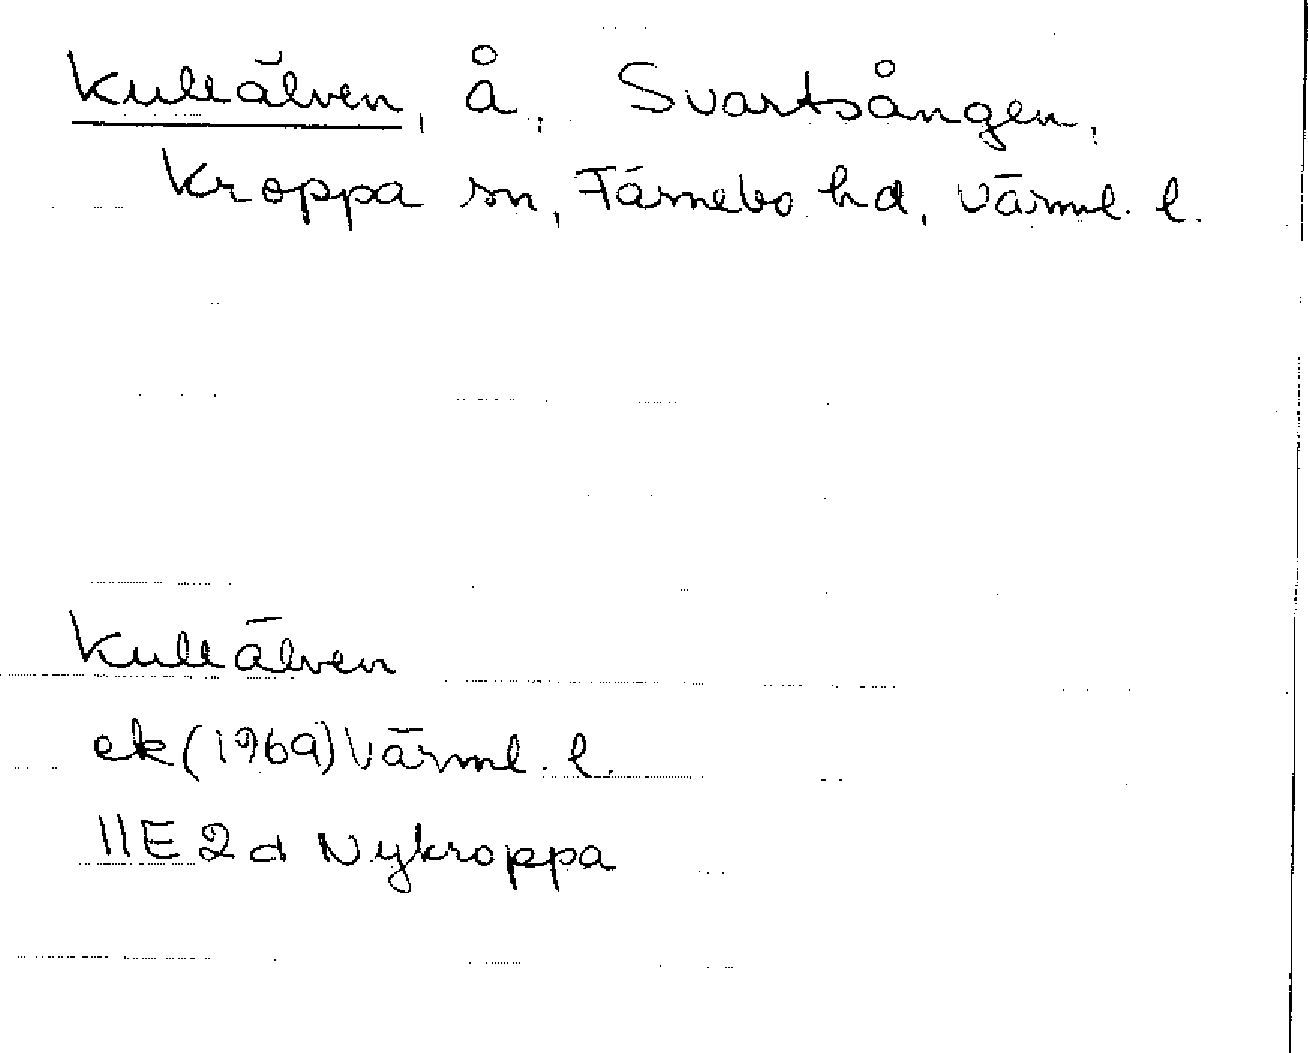 Kullälven, å, Svartsången,
Kroppa sn, Färnebo hd, Värml. l.
Kullälven
ek (1969) Värml. l.
11E 2d Nykroppa